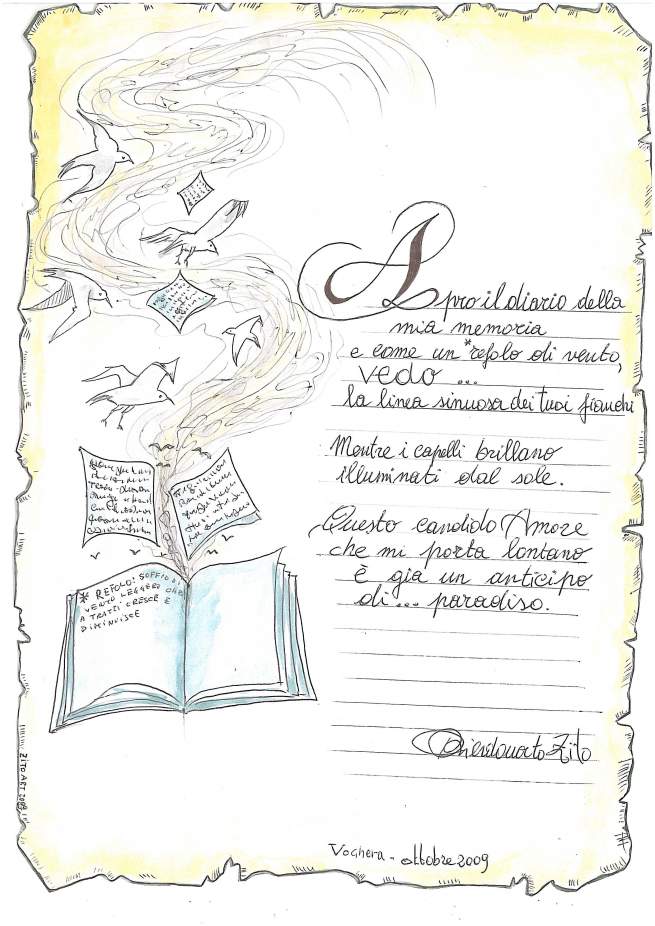 Apro il diario della
mia memoria
e come un *refolo di vento,
vedo ...
la linea sinuosa dei tuoi fianchi
Mentre i capelli brillano
illuminati dal sole.
Questo candido Amore
che mi porta lontano
è gia un anticipo
di... paradiso.
* REFOLO: SOFFIO DI
VENTO LEGGERO CHE
A TRATTI CRESCE E
DIMINUISCE
Zito
Voghera - ottobre 2009